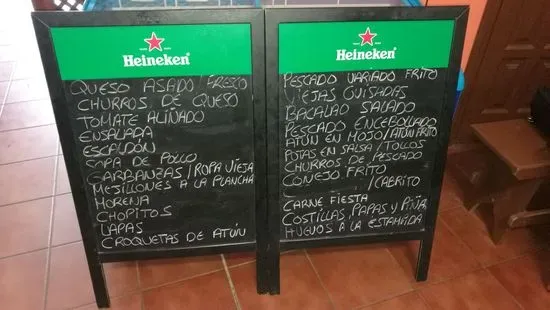 Heineken
QUESO ASADO / FRESCO
CHURROS DE QUESO
TOMATE ALIÑADO
ENSALADA
ESCALDÓN
SOPA DE POLLO
GARBANZAS / ROPA VIEJA
MEJILLONES A LA PLANCHA
MORENA
CHOPITOS
LAPAS
CROQUETAS DE ATÚN
Heineken
PESCADO VARIADO FRITO
VIEJAS GUISADAS
BACALAO SALADO
PESCADO ENCEBOLLADO
ATÚN EN MOJO / ATÚN FRITO
POTAS EN SALSA / TOLLOS
CHURROS DE PESCADO
CONEJO FRITO
/ CABRITO
CARNE FIESTA
COSTILLAS, PAPAS Y PIÑA
HUEVOS A LA ESTAMPIDA